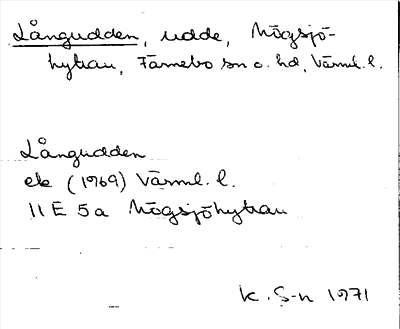 Långudden, udde, Högsjö-
hyttan, Färnebo sn o. hd, Värml. l.
Långudden
ek (1969) Värml. l.
11 E 5a Högsjöhyttan
K. S-n 1971